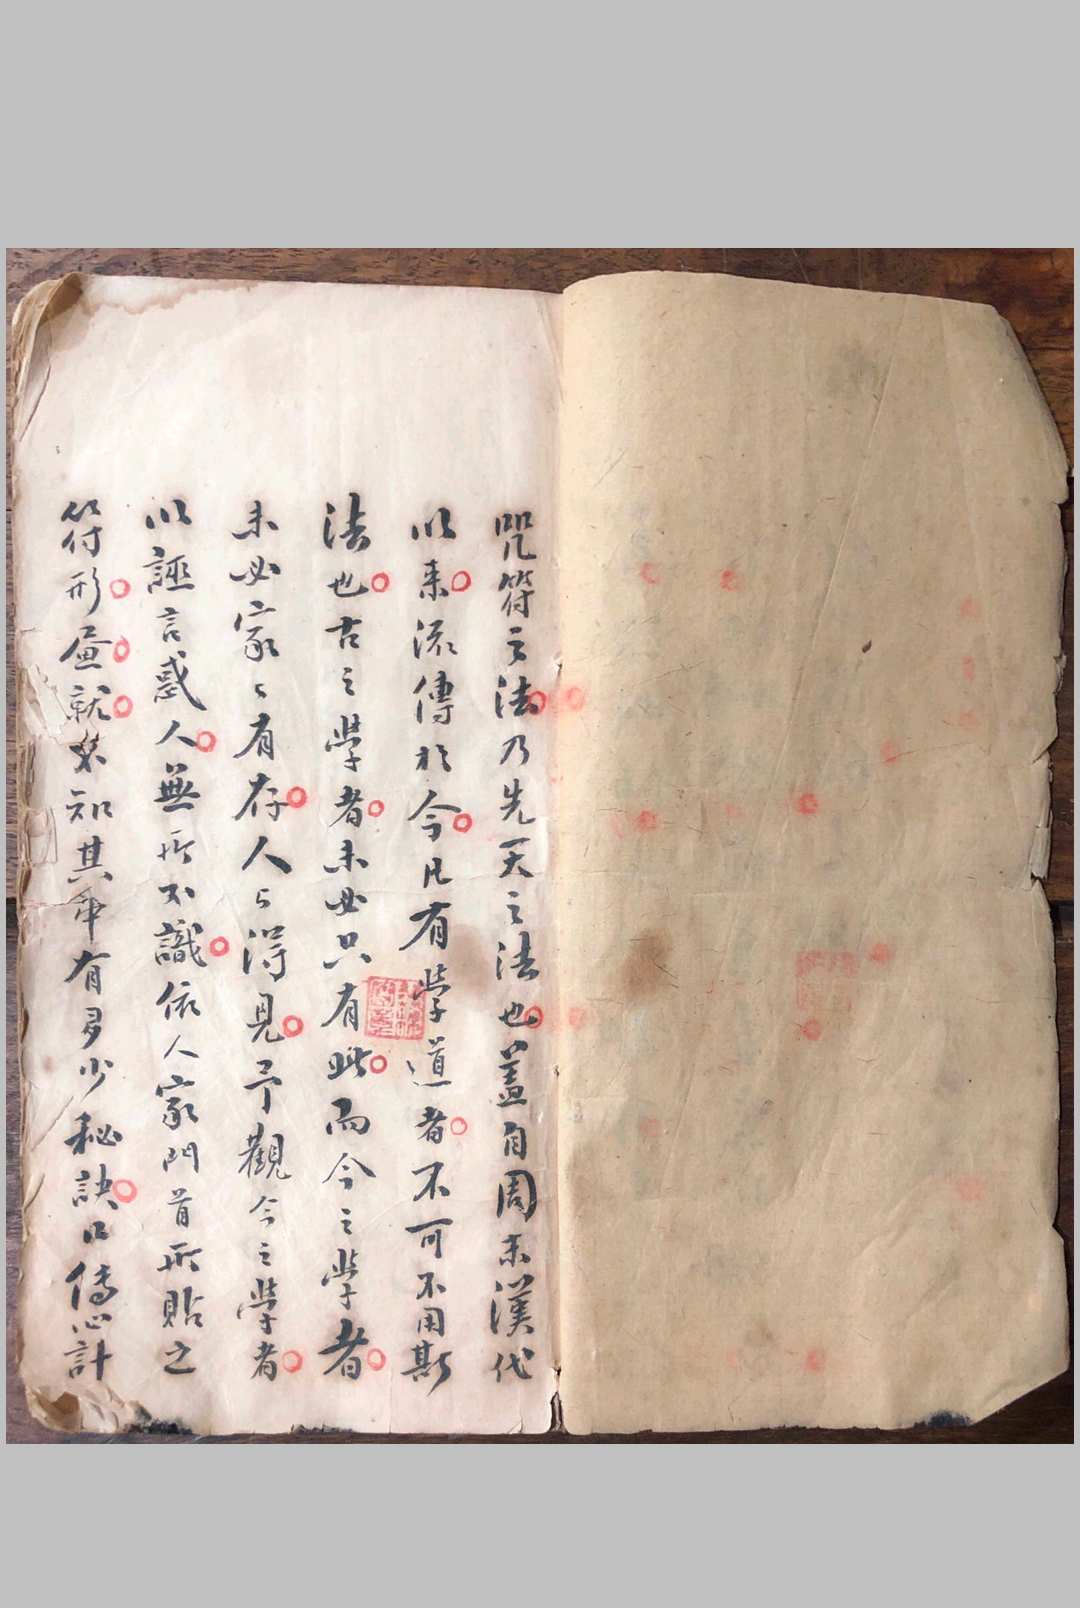 咒符之法乃先天之法也蓋自周末漢代
以来流傳於今凡有學道者不可不用斯
法也古之學者未必只有此而今之學者
未必家々有存人々得見予觀今之學者
以誣言惑人無所不識依人家門首所貼之
符形畫就知其有多少秘訣口傳心計